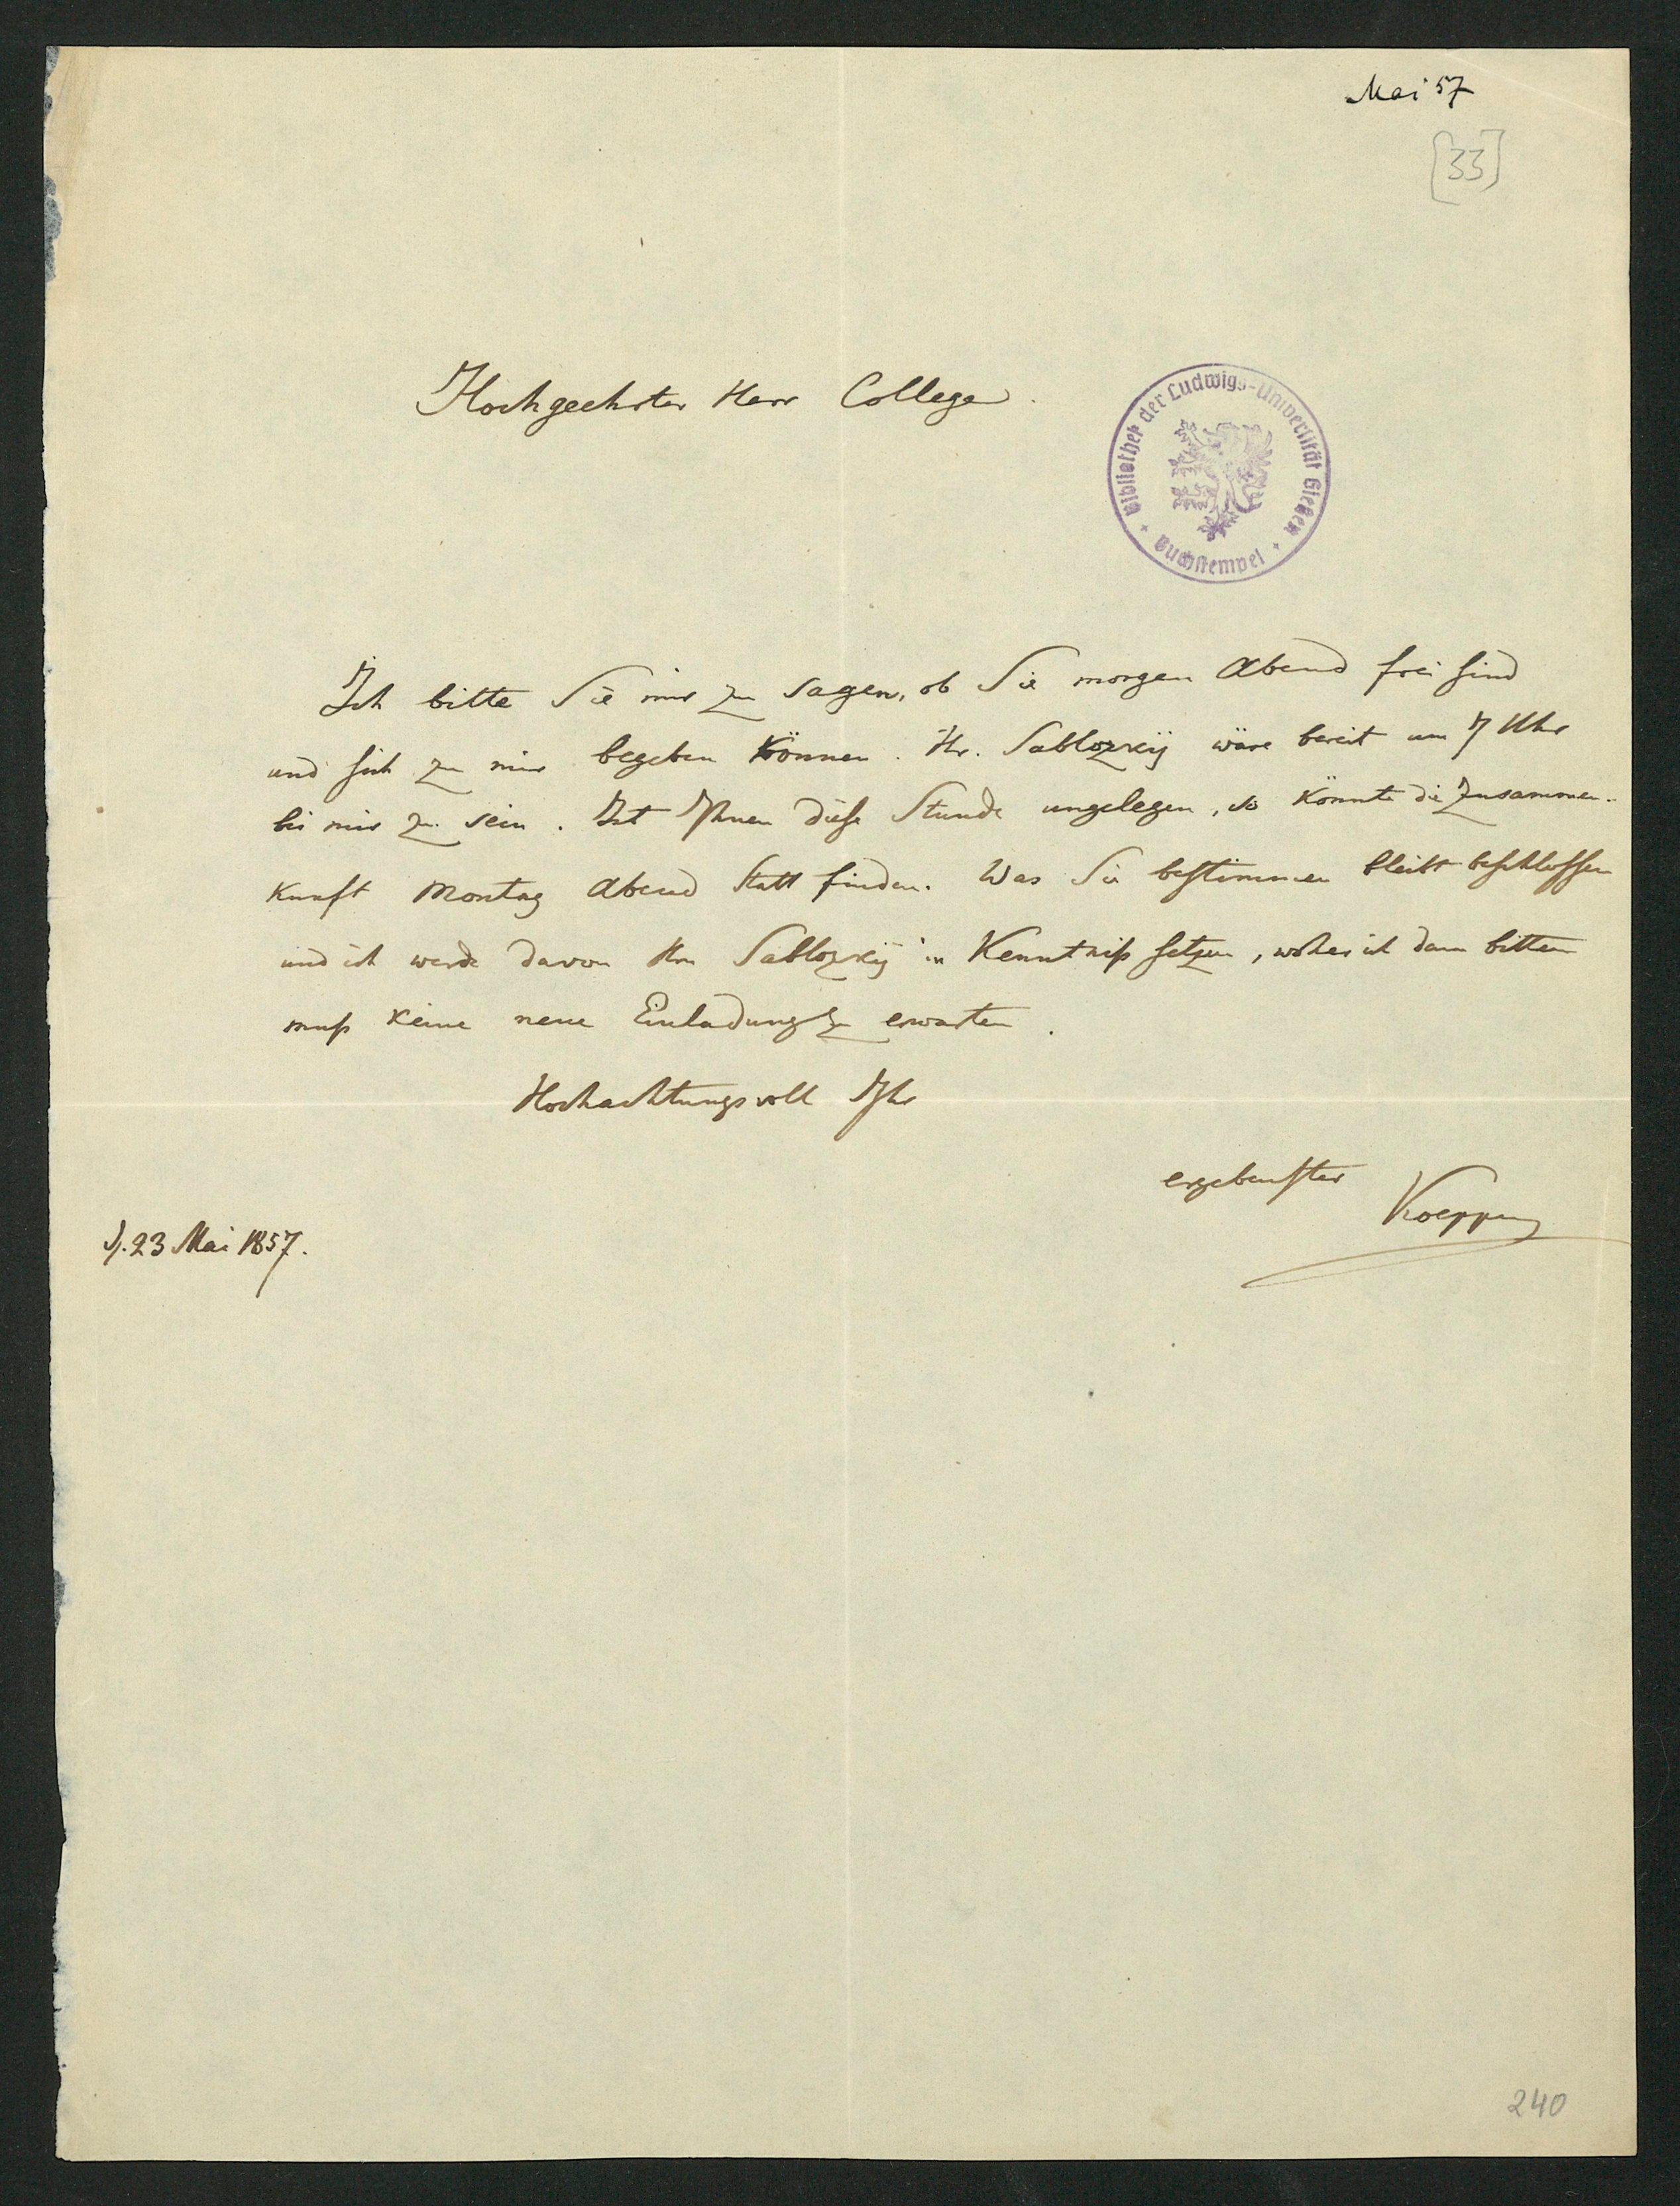 Mai 57
[33]
Hochgeehrter Herr College.
Bibliothek der Ludwigs-Universität Gießen
Buchstempel
Ich bitte Sie mir zu sagen, ob Sie morgen Abend frei sind
und sich zu mir begeben können. Hr. Sablozkij wäre bereit um 7 Uhr
bei mir zu sein. Ist Ihnen diese Stunde ungelegen, so könnte die Zusammen-
kunft Montag Abend statt finden. Was Sie bestimmen bleibt beschlossen
und ich werde davon Hrn Sablozkij in Kenntniß setzen, woher ich dann bitten
muß keine neue Einladung zu erwarten.
Hochachtungsvoll Ihr
ergebenster Koeppen
23 Mai 1857.
240